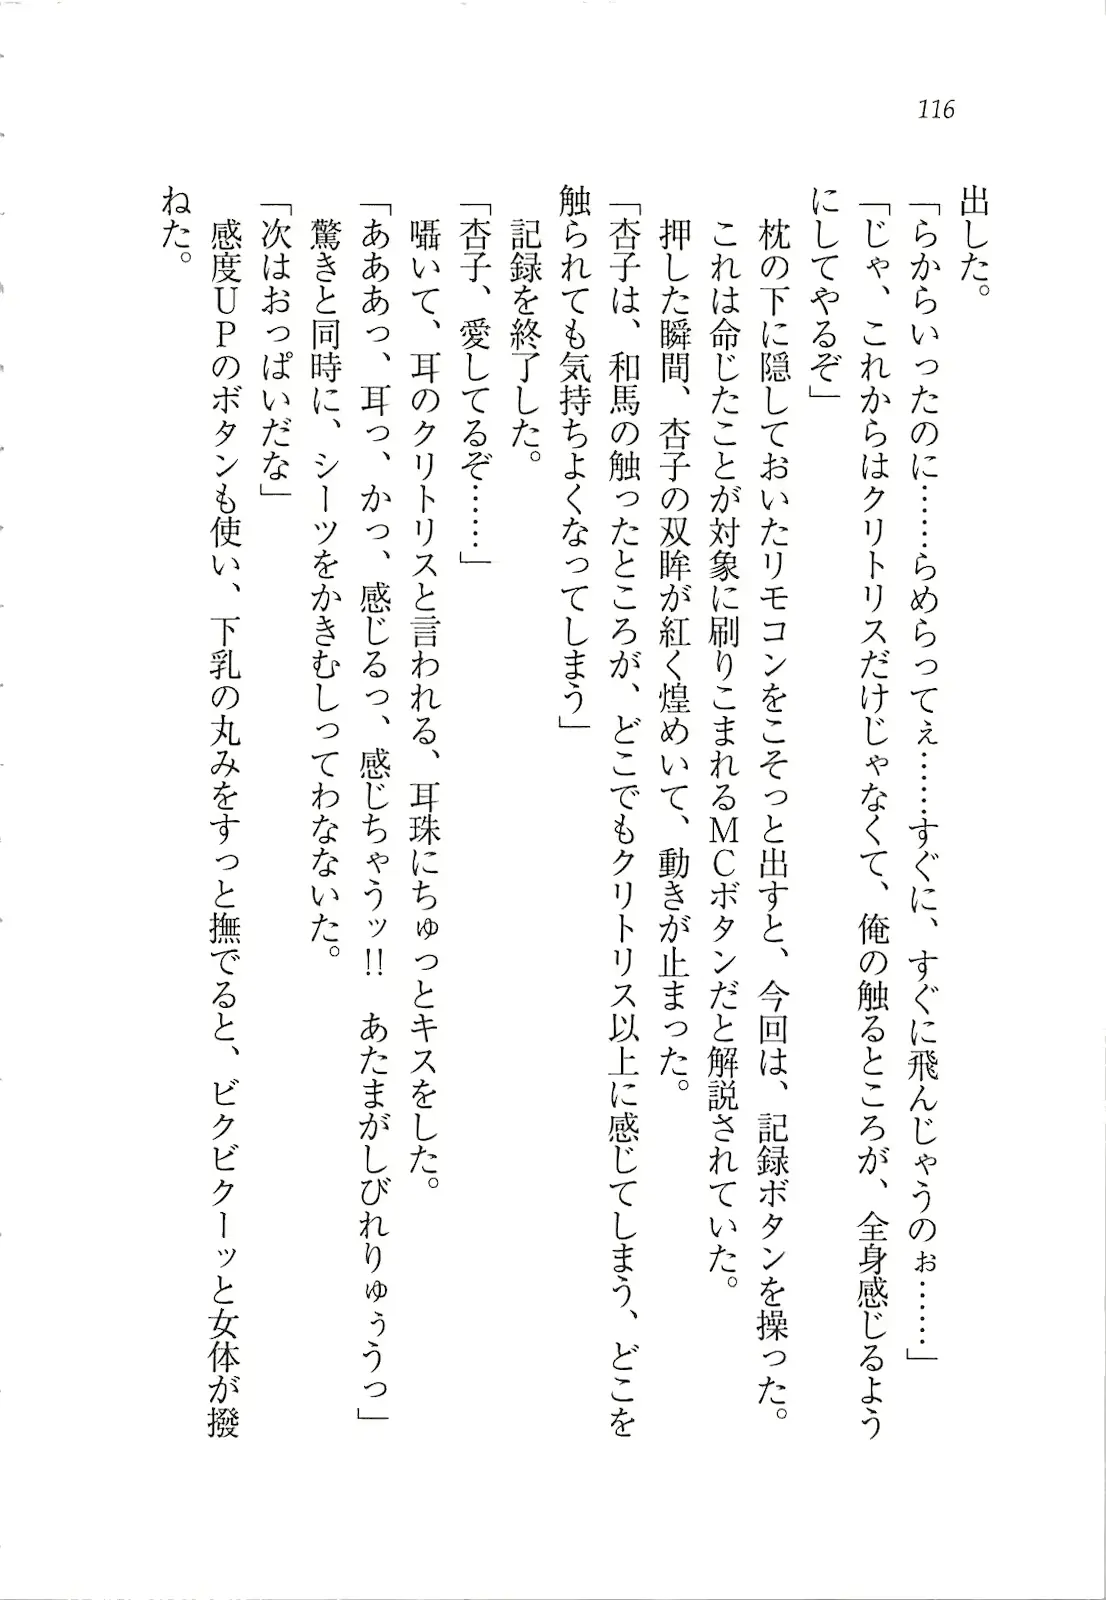 116
出した。
「らからいったのに……らめらってぇ……すぐに、すぐに飛んじゃうのぉ……」
「じゃ、これからはクリトリスだけじゃなくて、俺の触るところが、全身感じるよう
にしてやるぞ」
　枕の下に隠しておいたリモコンをこそっと出すと、今回は、記録ボタンを操った。
　これは命じたことが対象に刷りこまれるＭＣボタンだと解説されていた。
　押した瞬間、杏子の双眸が紅く煌めいて、動きが止まった。
「杏子は、和馬の触ったところが、どこでもクリトリス以上に感じてしまう、どこを
触られても気持ちよくなってしまう」
　記録を終了した。
「杏子、愛してるぞ……」
　囁いて、耳のクリトリスと言われる、耳珠にちゅっとキスをした。
「あああっ、耳っ、かっ、感じるっ、感じちゃうッ!!　あたまがしびれりゅぅうっ」
　驚きと同時に、シーツをかきむしってわなないた。
「次はおっぱいだな」
　感度ＵＰのボタンも使い、下乳の丸みをすっと撫でると、ビクビクーッと女体が撥
ねた。